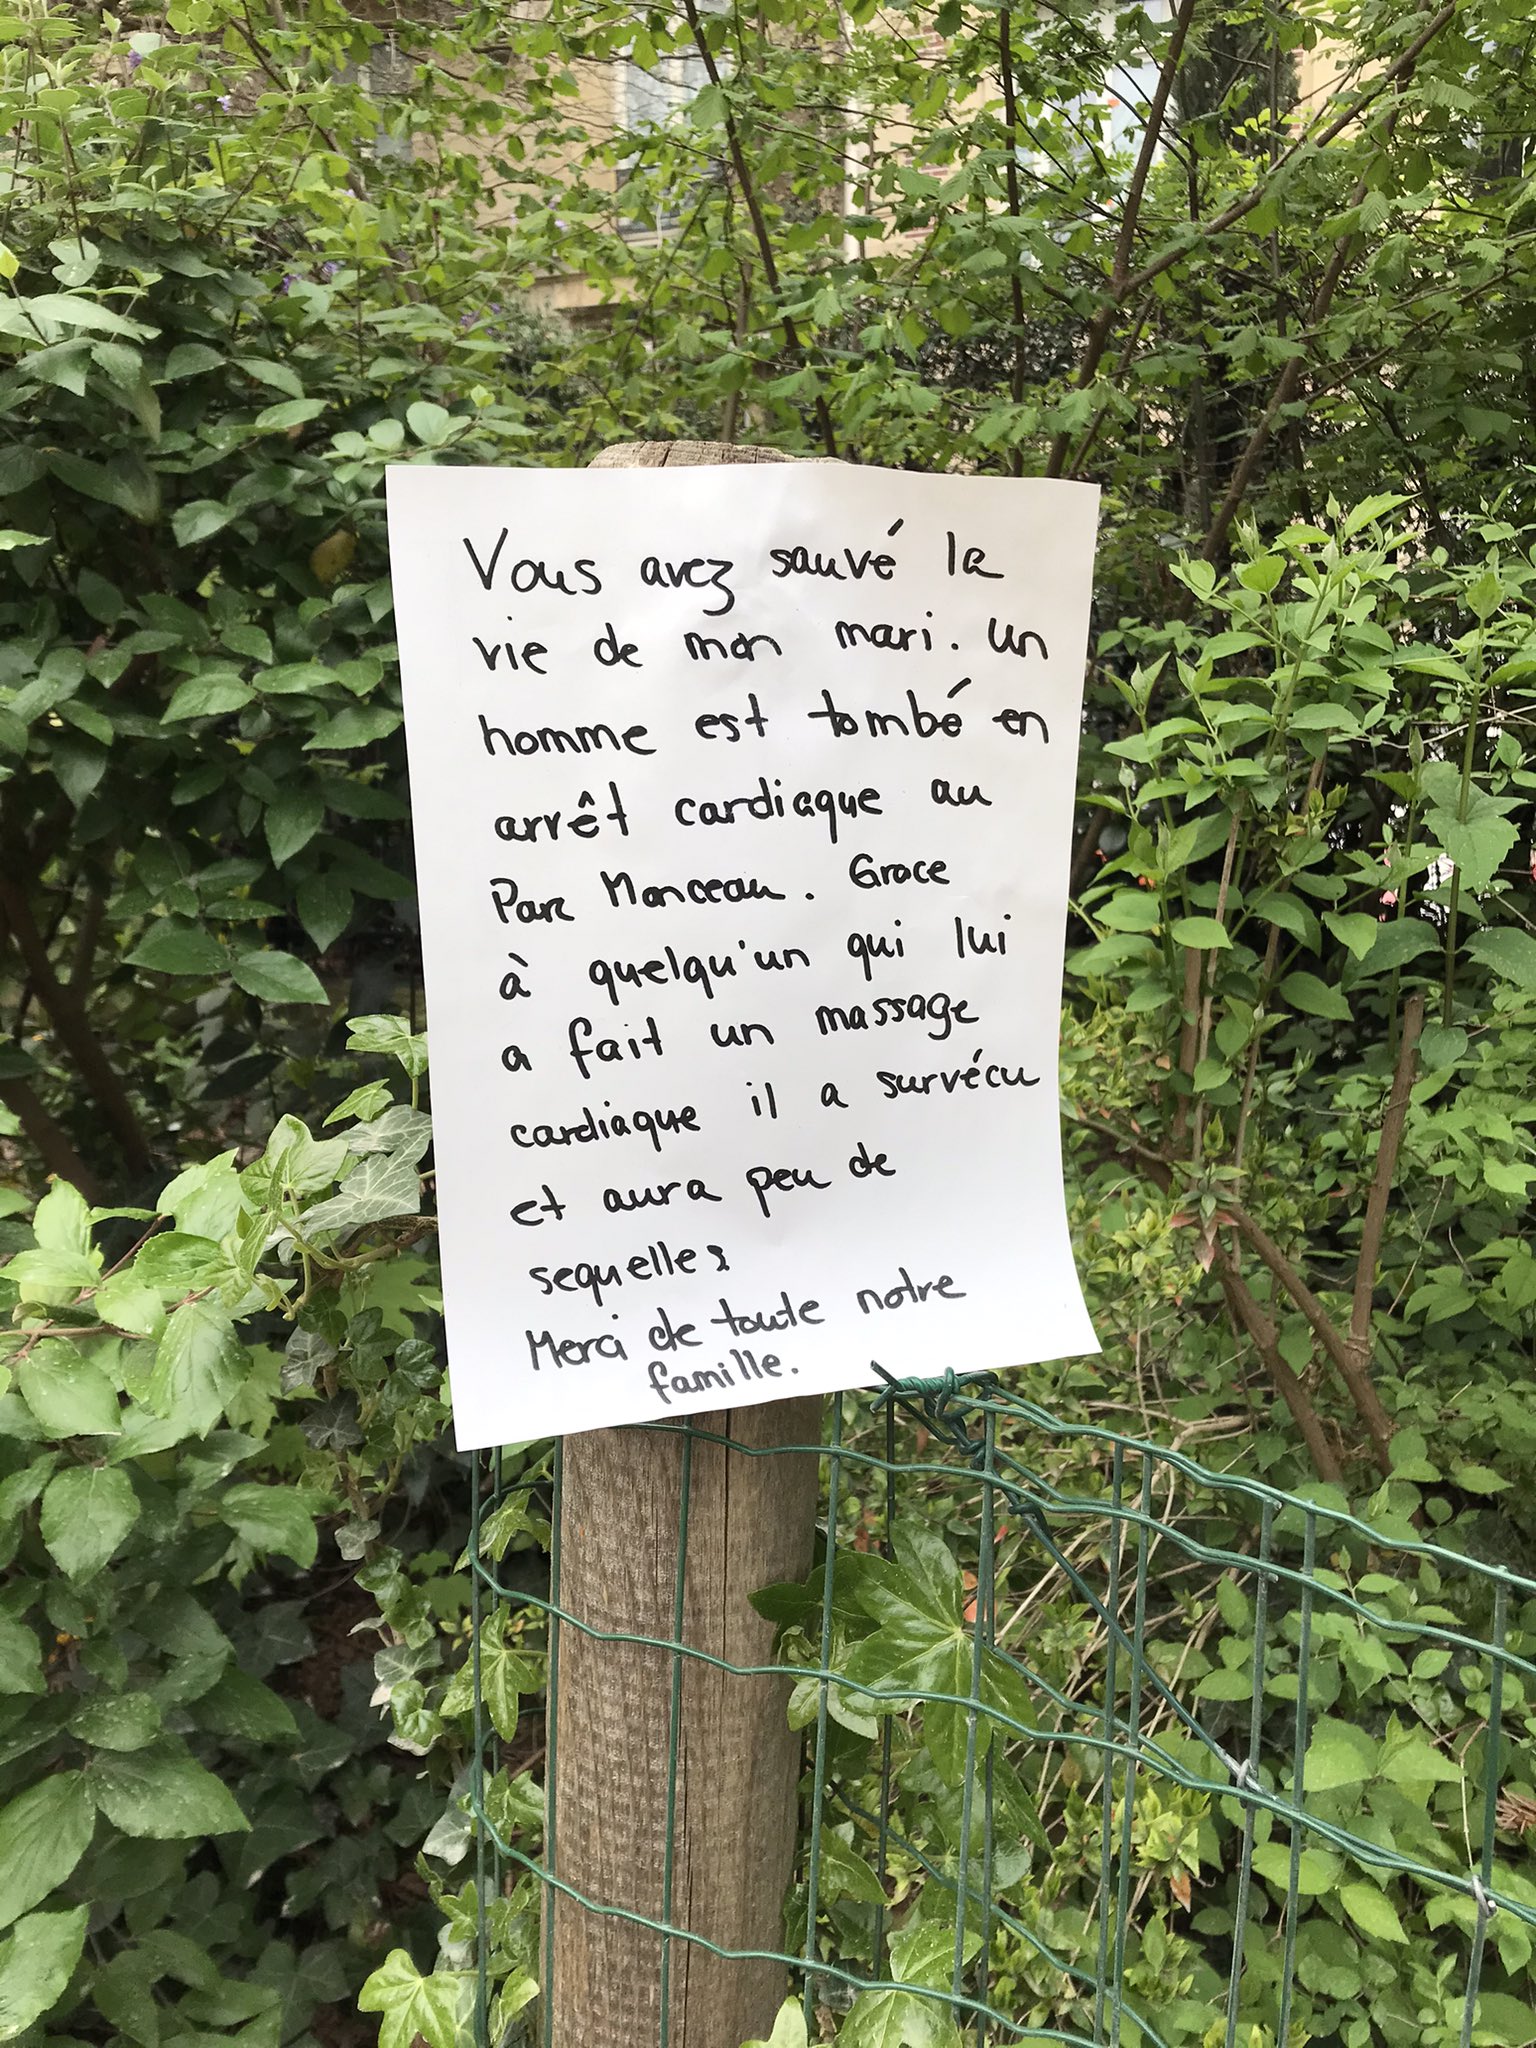 Vous avez sauvé la
vie de mon mari. Un
homme est tombé en
arrêt cardiaque au
Parc Monceau. Grace
à quelqu'un qui lui
a fait un massage
cardiaque il a survécu
et aura peu de
sequelles
Merci de toute notre
famille.